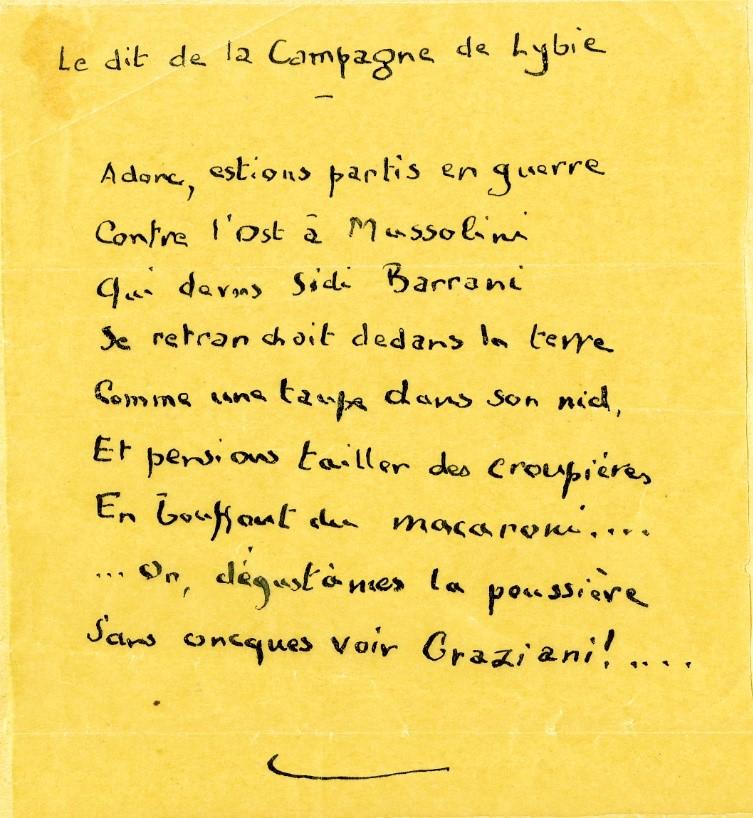 Le dit de la Campagne de Lybie
Adonc, estions partis en guerre
Contre l'Ost à Mussolini
Qui devers Sidi Barrani
Se retranchoit dedans la terre
Comme une taupe dans son nid,
Et pensions tailler des croupières
En bouffant du macaroni....
... Or, dégustâmes la poussière
Sans oncques voir Graziani!....